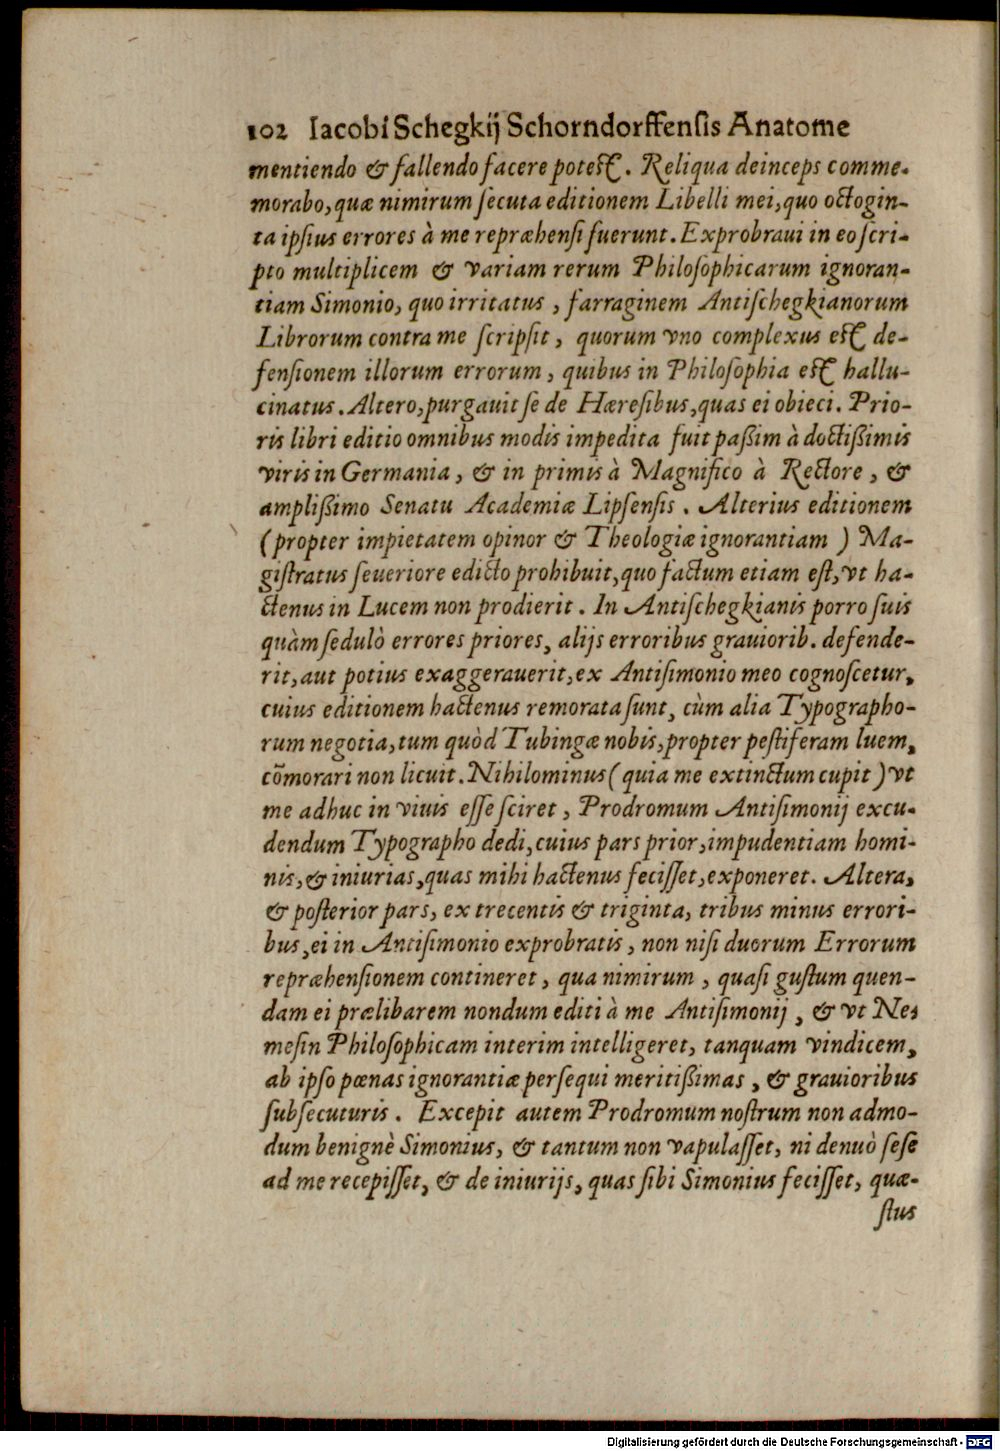 102 Iacobi Schegkij Schorndorffensis Anatome
mentiendo & fallendo facere potest. Reliqua deinceps comme-
morabo, quæ nimirum secuta editionem Libelli mei, quo octogin-
ta ipsius errores à me repræhensi fuerunt. Exprobraui in eo scri-
pto multiplicem & variam rerum Philosophicarum ignoran-
tiam Simonio, quo irritatus, farraginem Antischegkianorum
Librorum contra me scripsit, quorum vno complexus est de-
fensionem illorum errorum, quibus in Philosophia est hallu-
cinatus. Altero, purgauit se de Hæresibus, quas ei obieci. Prio-
ris libri editio omnibus modis impedita fuit paßim à doctißimis
viris in Germania, & in primis à Magnifico à Rectore, &
amplißimo Senatu Academiæ Lipsensis. Alterius editionem
(propter impietatem opinor & Theologiæ ignorantiam) Ma-
gistratus seueriore edicto prohibuit, quo factum etiam est, vt ha-
ctenus in Lucem non prodierit. In Antischegkianis porro suis
quàm sedulò errores priores, alijs erroribus grauiorib. defende-
rit, aut potius exaggerauerit, ex Antisimonio meo cognoscetur,
cuius editionem hactenus remorata sunt, cùm alia Typographo-
rum negotia, tum quòd Tubingæ nobis, propter pestiferam luem,
cõmorari non licuit. Nihilominus (quia me extinctum cupit) vt
me adhuc in viuis esse sciret, Prodromum Antisimonij excu-
dendum Typographo dedi, cuius pars prior, impudentiam homi-
nis, & iniurias, quas mihi hactenus fecisset, exponeret. Altera,
& posterior pars, ex trecentis & triginta, tribus minus errori-
bus, ei in Antisimonio exprobratis, non nisi duorum Errorum
repræhensionem contineret, qua nimirum, quasi gustum quen-
dam ei prælibarem nondum editi à me Antisimonij, & vt Ne-
mesin Philosophicam interim intelligeret, tanquam vindicem,
ab ipso pœnas ignorantiæ persequi meritißimas, & grauioribus
subsecuturis. Excepit autem Prodromum nostrum non admo-
dum benignè Simonius, & tantum non vapulasset, ni denuò sese
ad me recepisset, & de iniurijs, quas sibi Simonius fecisset, quæ-
stus
Digitalisierung gefördert durch die Deutsche Forschungsgemeinschaft - DFG